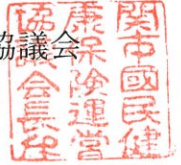 協議会
関市國民健
康保険運営
協議会長印